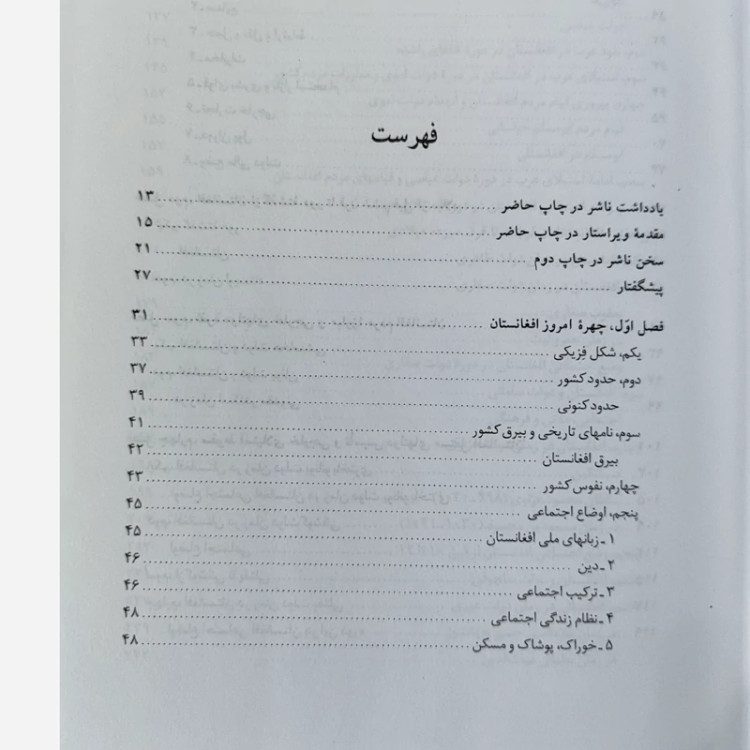 فهرست
یادداشت ناشر در چاپ حاضر ........ ۱۳
مقدمهٔ ویراستار در چاپ حاضر ........ ۱۵
سخن ناشر در چاپ دوم ........ ۲۱
پیشگفتار ........ ۲۷
فصل اوّل، چهرهٔ امروز افغانستان ........ ۳۱
یکم، شکل فِزیکی ........ ۳۳
دوم، حدود کشور ........ ۳۷
حدود کنونی ........ ۳۹
سوم، نامهای تاریخی و بیرق کشور ........ ۴۱
بیرق افغانستان ........ ۴۲
چهارم، نفوس کشور ........ ۴۳
پنجم، اوضاع اجتماعی ........ ۴۵
۱ ـ زبانهای ملی افغانستان ........ ۴۵
۲ ـ دین ........ ۴۶
۳ ـ ترکیب اجتماعی ........ ۴۶
۴ ـ نظام زندگی اجتماعی ........ ۴۸
۵ ـ خوراک، پوشاک و مسکن ........ ۴۸